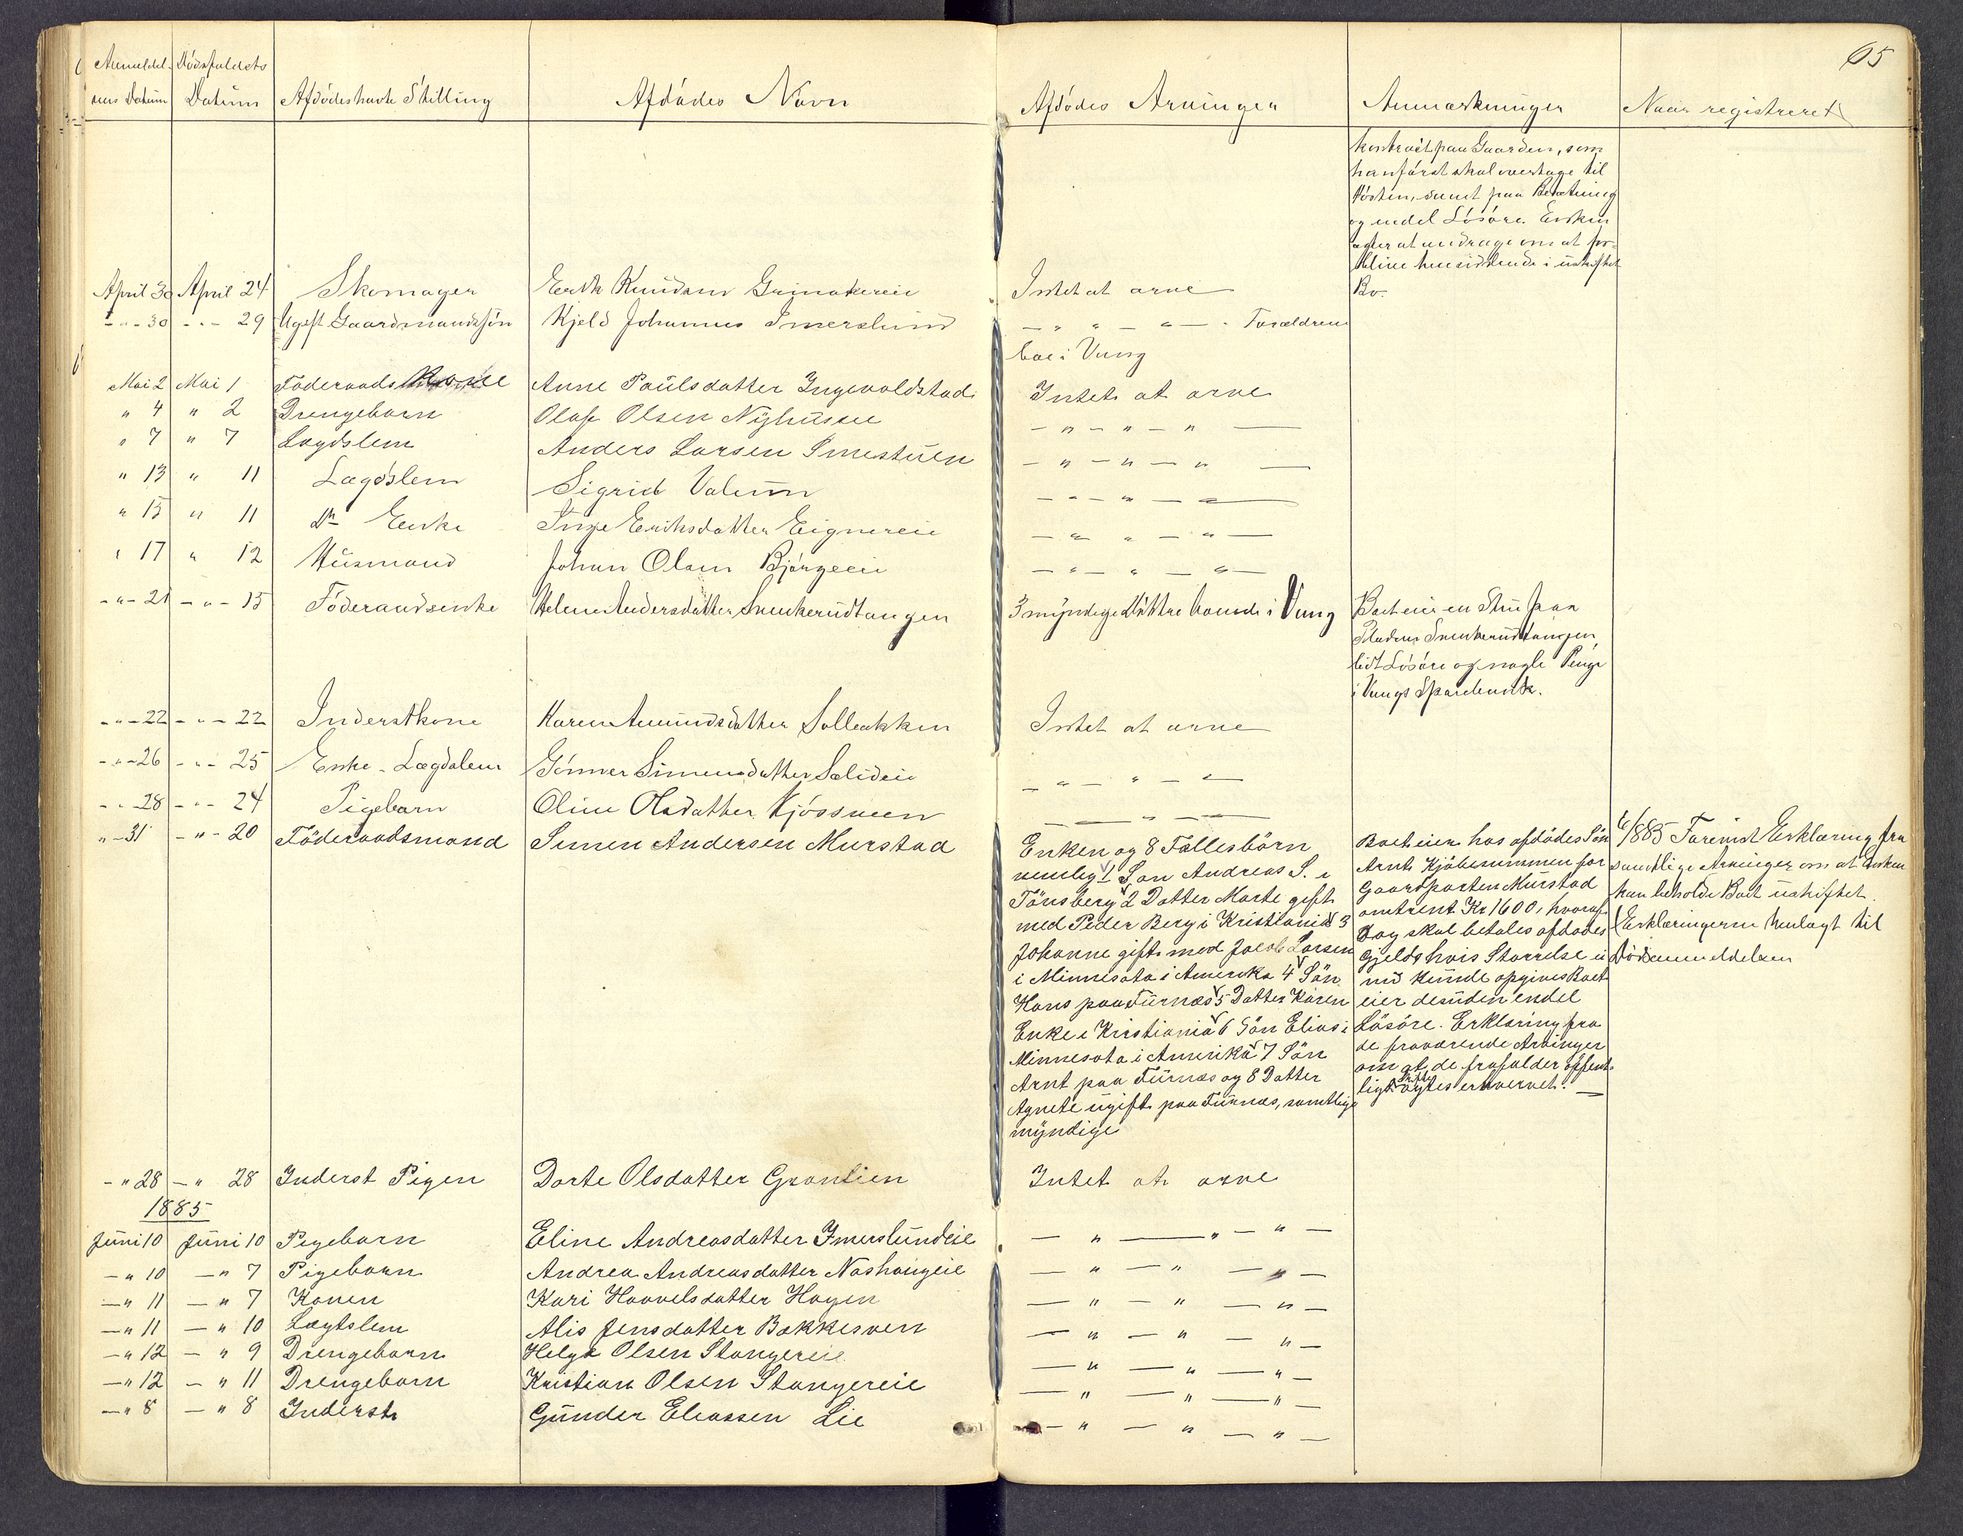 65
Anmeldelsens Datum | Dødsfaldets Datum | Afdødes havte Stilling | Afdødes Navn | Afdødes Arvinger | Anmærkninger | Naar registreret
kontract paa Gaarden, som
han først skal overtage til
Høsten, samt paa Besætning
og endel Løsøre. Enken
agter at andrage om at for-
blive hensiddende i uskiftet
Bo.
April 30 | April 24 | Skomager | Erik Knudsen Grinakereie | Intet at arve
- " - 30 | - " - 29 | Ugift Gaardmandssøn | Kjeld Johannes Imerslund | - " " - " - Forældrene
boe i Vang
Mai 2 | Mai 1 | Föderaads | Anne Paulsdatter Ingevoldstad | Intet at arve
" 4 | " 2 | Drengebarn | Olaf Olsen Nyhusee | - " - " - " -
" 7 | " 7 | Lægdslem | Anders Larsen Smestuen | - " - " - " -
" 13 | " 11 | Lægdslem | Sigrid Valum | - " - " -
" 15 | " 11 | Do Enke | Inge Eriksdatter Eignereie | - " " - " -
" 17 | " 12 | Husmand | Johan Olsen Bjørgeeie | - " - " - " -
- " - 21 | - " - 15 | Föderaadsenke | Helene Andersdatter Svenkerudtangen | 3 myndige Døttre boende i Vang | Boet eier en Stue paa
Pladsen Svenkerudtangen,
lidt Løsøre og nogle Penge
i Vangs Sparebank.
- " - 22 | - " - 22 | Inderstkone | Karen Amundsdatter Solbakken | Intet at arve
- " - 26 | - " - 25 | Enke - Lægdslem | Gönner Simensdatter Sælideie | - " - " - " -
- " - 28 | - " - 24 | Pigebarn | Oline Olsdatter Kjösveen | - " -
" - 31 | - " - 20 | Föderaadsmand | Simen Andersen Murstad | Enken og 8 Fællesbörn
nemlig 1 Søn Andreas S. i
Tönsberg 2 Datter Marte gift
med Peder Berg i Kristiania 3
Johanne gift med Jacob Larsen
i Minnesota i Amerika 4 Sön
Hans paa Furnæs 5 Datter Karen
Enke i Kristiania 6 Sön Elias i
Minnesota i Amerika 7 Sön
Arnt paa Furnæs og 8 Datter
Agnete ugift paa Furnæs, samtlige
myndige
Boet eier hos afdødes Søn
Arnt Kjøbesummen for
Gaardparten Murstad
omtrent Kr 1600, hvoraf
dog skal betales afdødes
Gjeld hvis Størrelse ei
nu kunde opgives Boet
eier desuden endel
Løsøre. Erklæring fra
de fraværende Arvinger
om at de frafalder offent-
ligt Skifte agtes erhvervet. —
6/ 1885 Forevist Erklæring fra
samtlige Arvinger om at Enken
kan beholde Boet uskiftet.
Erklæringerne henlagt til
Dødsanmeldelsen
- " 28 | - " 28 | Inderst Pigen | Dorte Olsdatter Gronlien | Intet at arve
1885
Juni 10 | Juni 10 | Pigebarn | Eline Andreasdatter Imerslundeie | - " - " - " -
- " 10 | - " 7 | Pigebarn | Andrea Andreasdatter Nashougeie | - " - " - " -
- " 11 | - " 7 | Konen | Kari Haavelsdatter Hagen | - " - " - " -
- " 11 | - " 10 | Lægtslem | Alis Jensdatter Bakkesven | - " - " - " -
- " 12 | - " 9 | Drengebarn | Helge Olsen Stangereie | - " - " - " -
- " 12 | - " 11 | Drengebarn | Kristian Olsen Stangereie | - " - " - " -
- " 8 | - " 8 | Inderst | Gunder Eliassen Lie | - " - " - " -